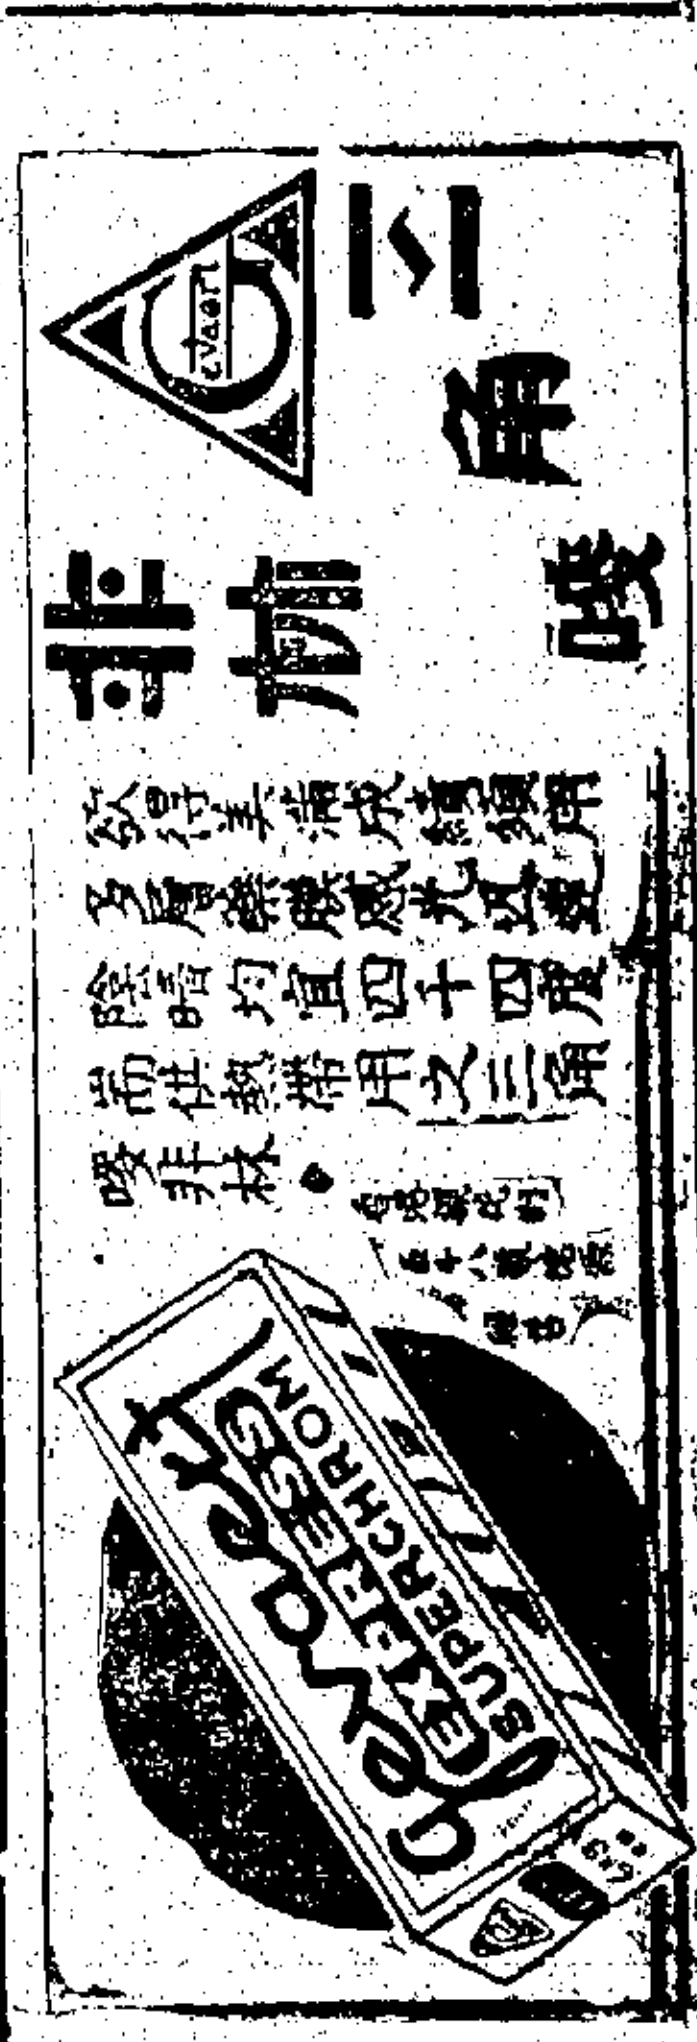 Gevaert
三角嘜
菲林
欲得美滿成績須用
多層藥膜感光迅速
陰晴均宜四十四度
而供熱帶用之三角
嘜菲林
Gevaert
EXPRESS
SUPERCHROM